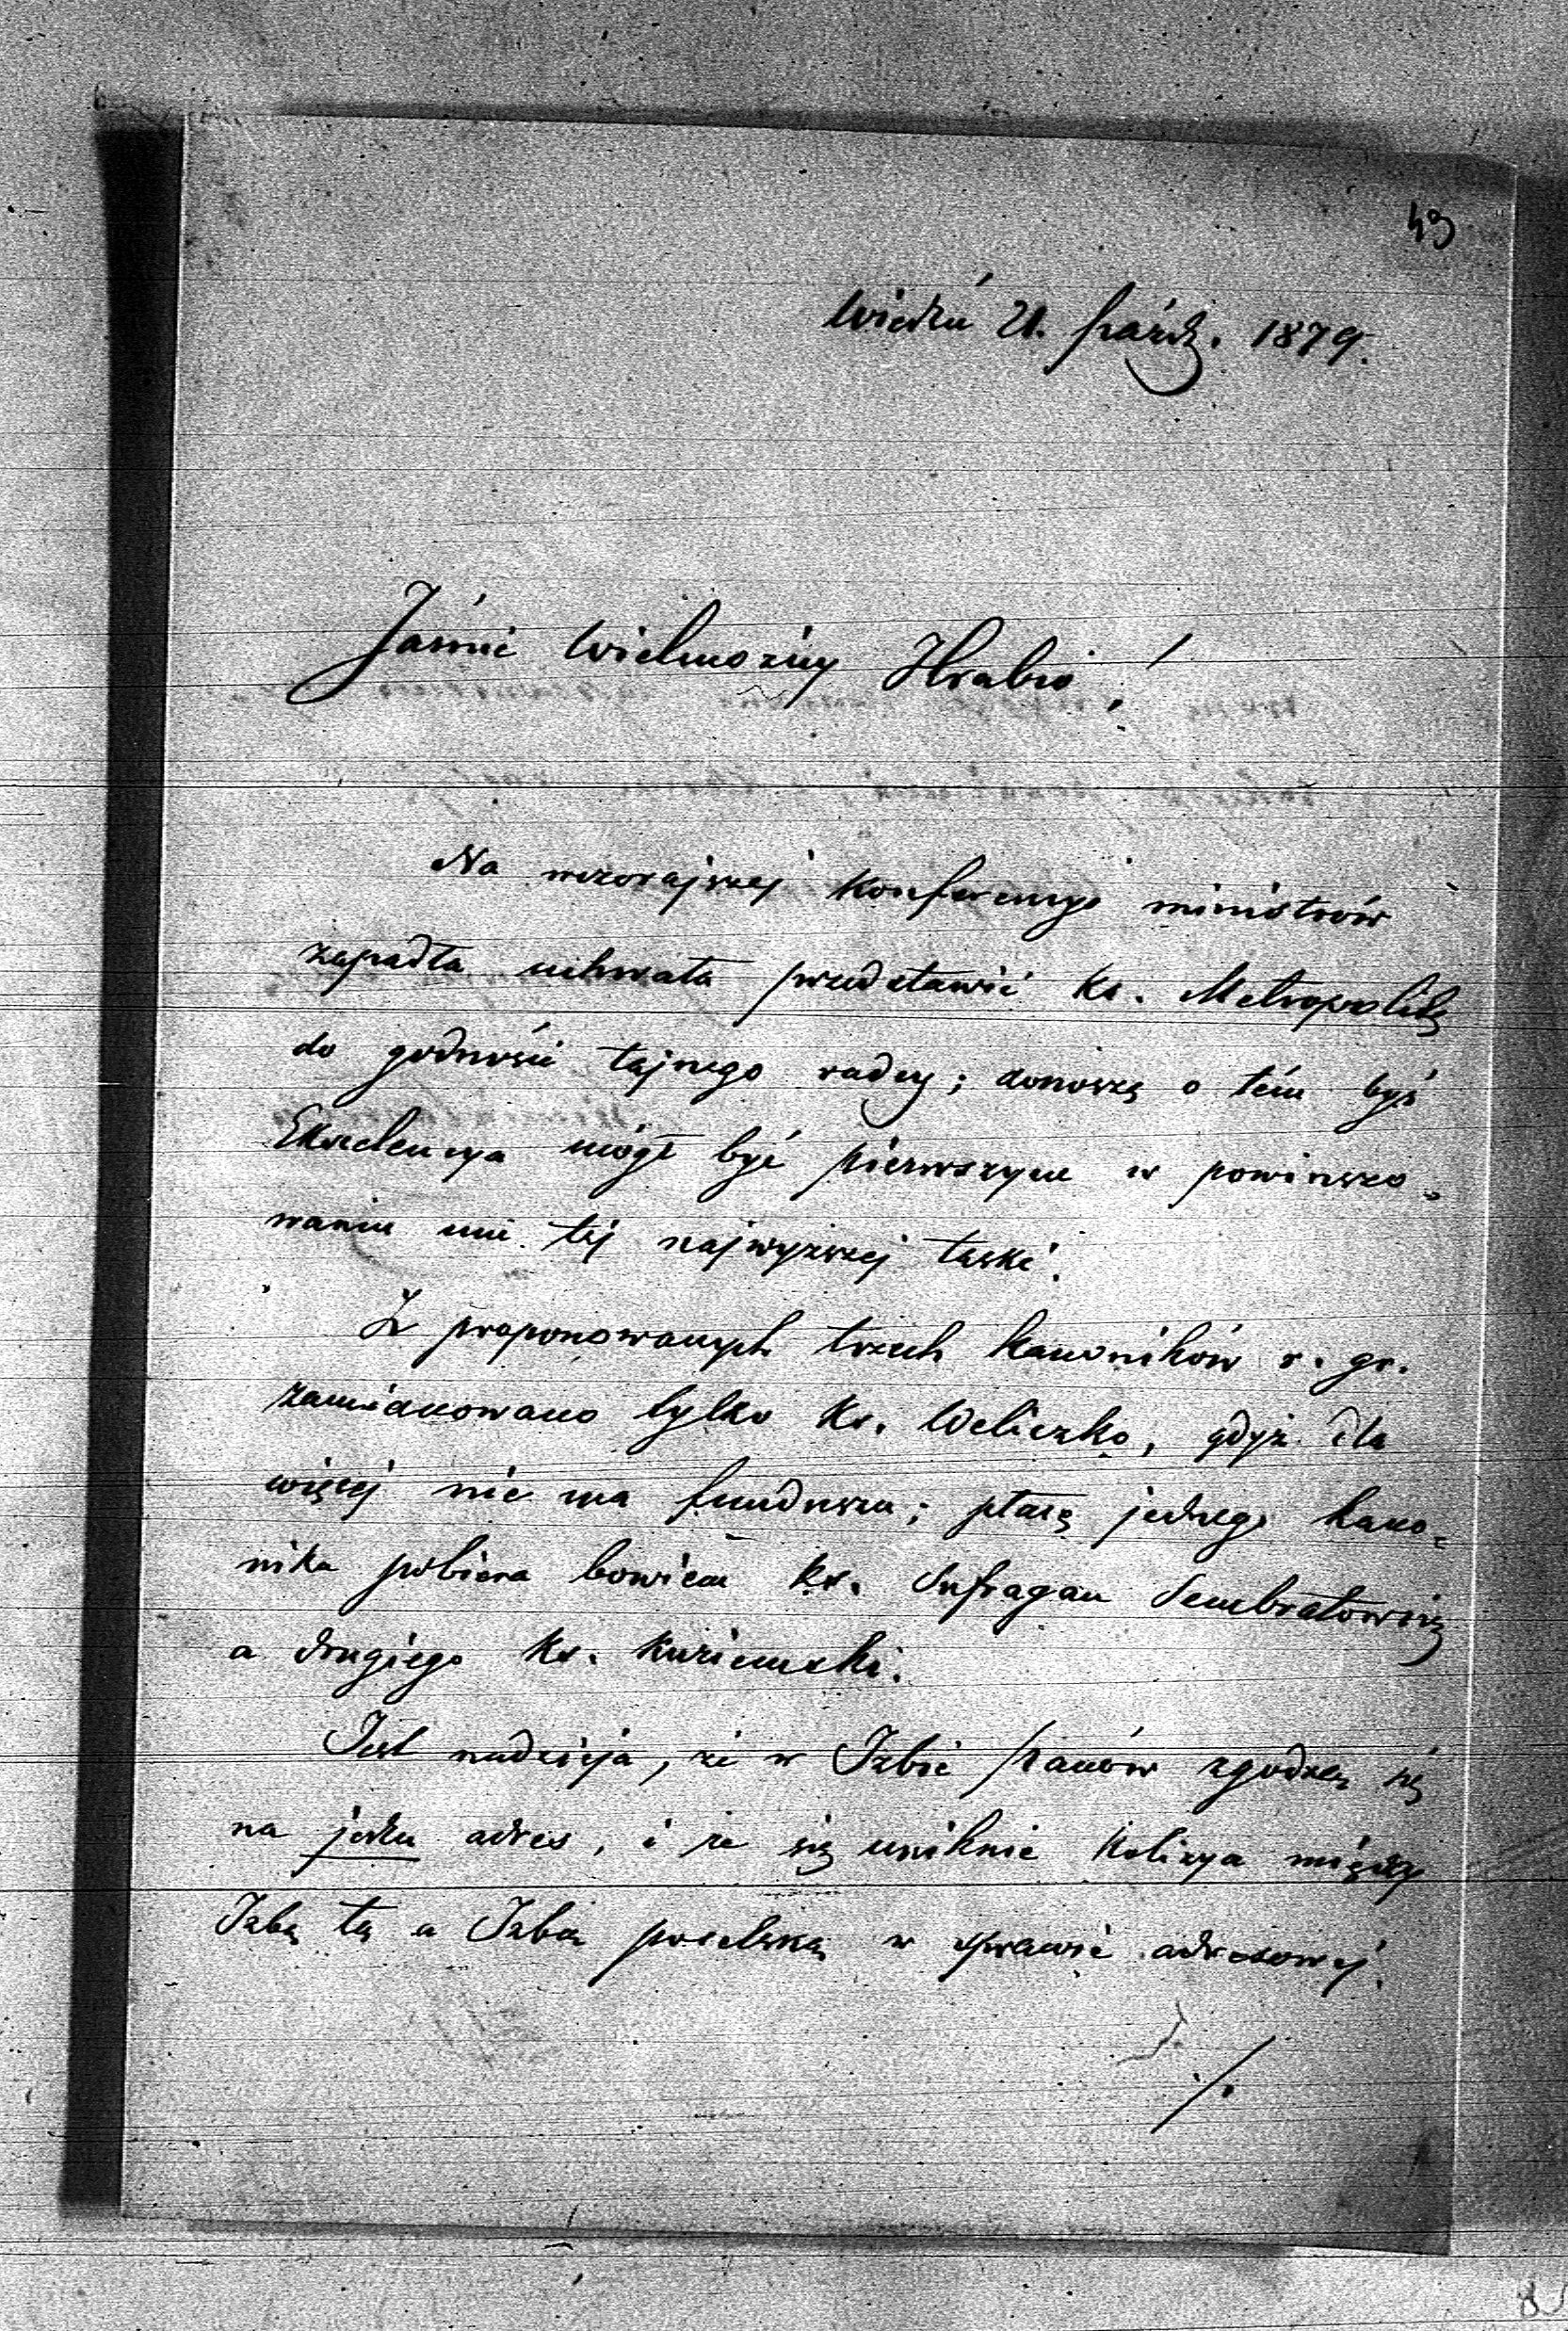 43
Wiedeń 21. paźdz. 1879.
Jaśnie Wielmożny Hrabio!
Na wczorajszej konferencyi ministrów
zapadła uchwała przedstawić ks. Metropolitę
do godności tajnego radcy; donoszę o tém byś
Ekscelencya mógł być pierwszym w powinszo-
waniu mu tej najwyższej łaski.
Z proponowanych trzech kanoników r. gr.
zamianowano tylko ks. Weliczko, gdyż dla
więcej nie ma funduszu; płacę jednego kano-
nika pobiera bowiem ks. Sufragan Sembratowicz
a drugiego ks. Kuziemski.
Jest nadzieja, że w Izbie panów zgodzą się
na jeden adres, i że się uniknie kolizya między
Izbą tą a Izbą poselską w sprawie adresowej.
./.